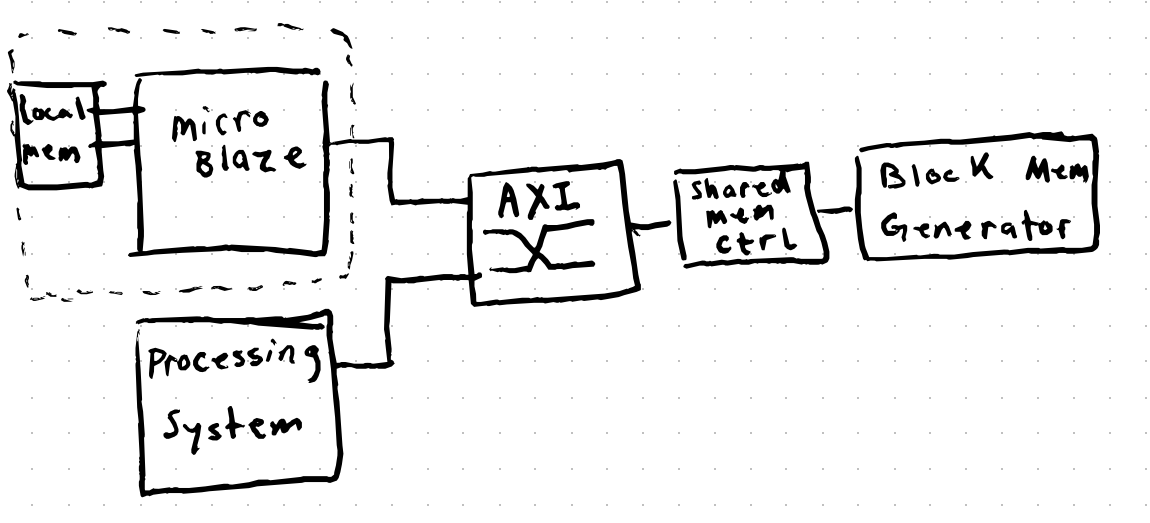 local
mem
micro
Blaze
AXI
shared
mem
ctrl
Block Mem
Generator
Processing
System